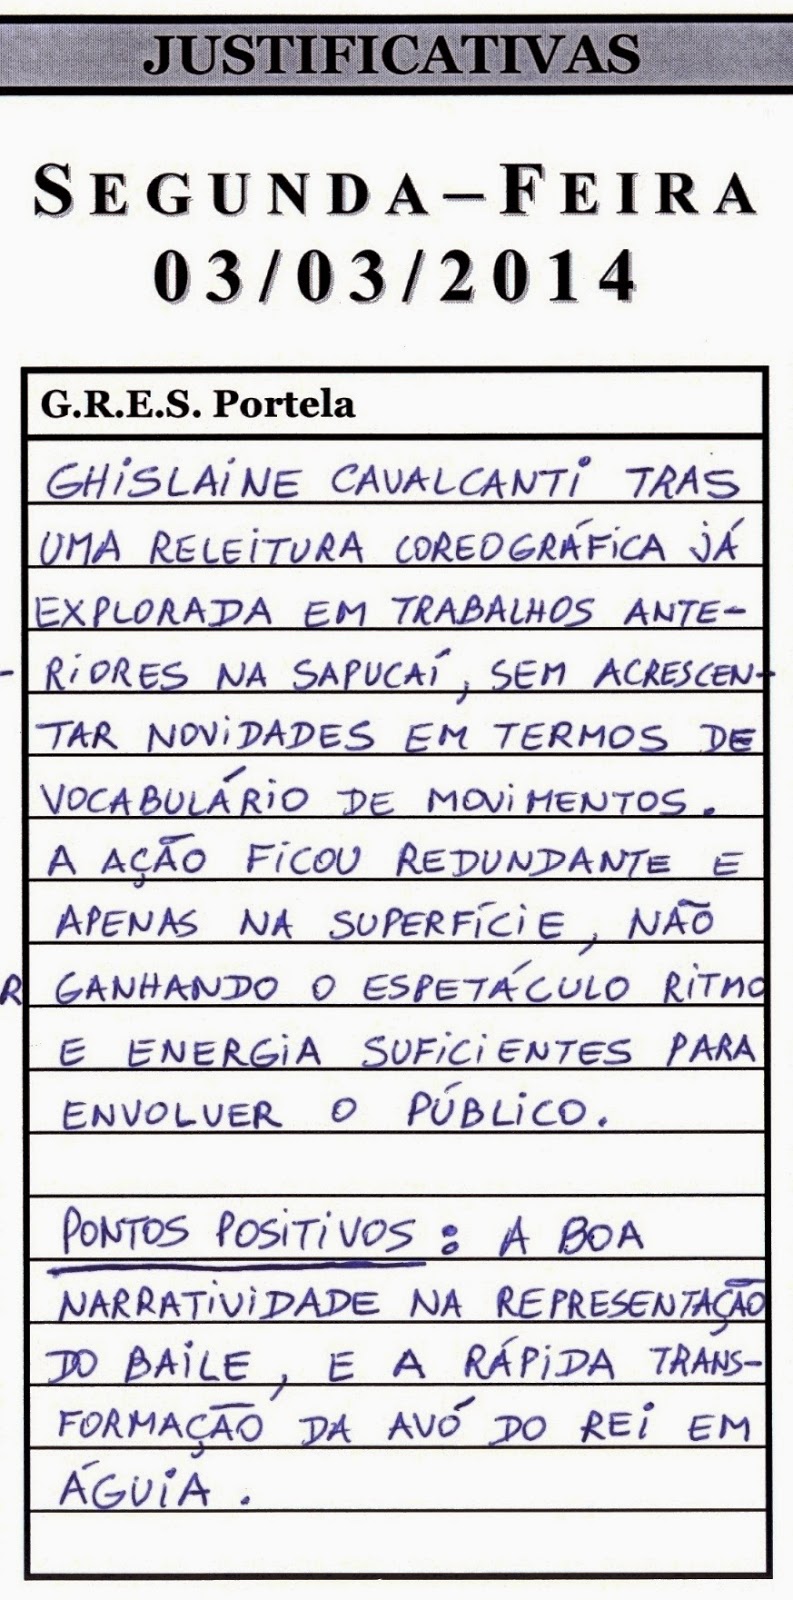 JUSTIFICATIVAS
SEGUNDA–FEIRA
03/03/2014
G.R.E.S. Portela
GHISLAINE CAVALCANTI TRAS
UMA RELEITURA COREOGRÁFICA JÁ
EXPLORADA EM TRABALHOS ANTE-
- RIORES NA SAPUCAÍ, SEM ACRESCEN-
TAR NOVIDADES EM TERMOS DE
VOCABULÁRIO DE MOVIMENTOS.
A AÇÃO FICOU REDUNDANTE E
APENAS NA SUPERFÍCIE, NÃO
R GANHANDO O ESPETÁCULO RITMO
E ENERGIA SUFICIENTES PARA
ENVOLVER O PÚBLICO.
PONTOS POSITIVOS: A BOA
NARRATIVIDADE NA REPRESENTAÇÃO
DO BAILE, E A RÁPIDA TRANS-
FORMAÇÃO DA AVÓ DO REI EM
ÁGUIA.